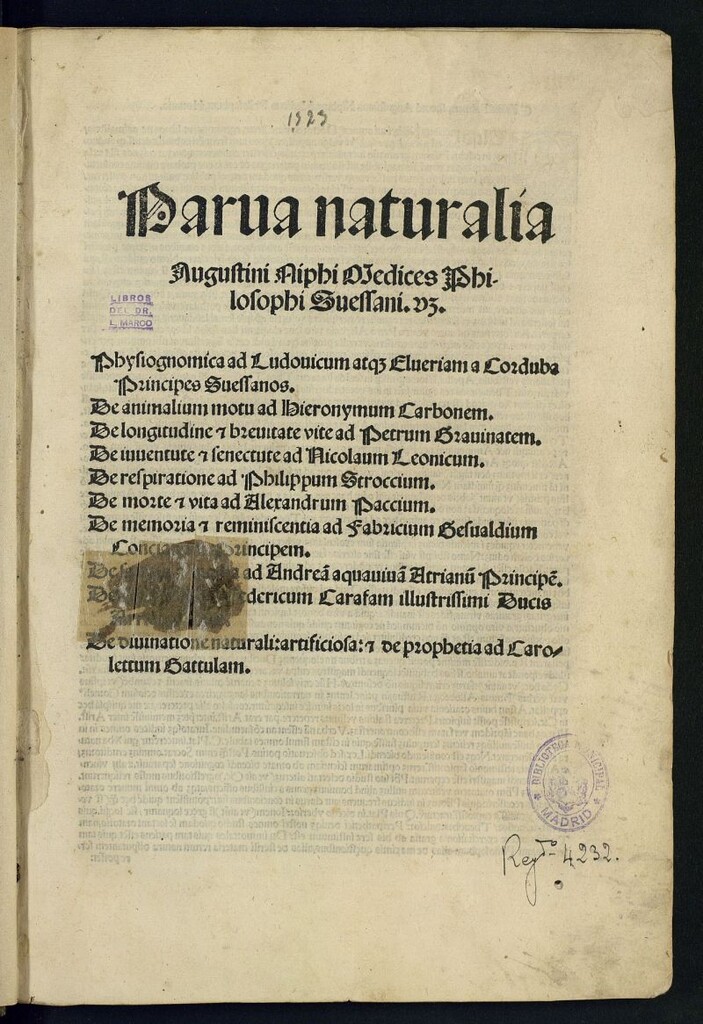 1523
Parua naturalia
Augustini Niphi Medices Phi-
losophi Suessani. vꝫ.
LIBROS
DEL DR.
L. MAROD
Physiognomica ad Ludouicum atqꝫ Elueriam a Corduba
Principes Suessanos.
De animalium motu ad Hieronymum Carbonem.
De longitudine ⁊ breuitate vite ad Petrum Grauinatem.
De iuuentute ⁊ senectute ad Nicolaum Leonicum.
De respiratione ad Philippum Stroccium.
De morte ⁊ vita ad Alexandrum Paccium.
De memoria ⁊ reminiscentia ad Fabricium Gesualdium
principem.
De ad Andreã aquauiuã Atrianũ Principẽ.
De Carafam illustrissimi Ducis
De diuinatione naturali: artificiosa: ⁊ de prophetia ad Caro-
lettum Gattulam.
BIBLIOTECA MUNICIPAL
MADRID
Regto 4232.